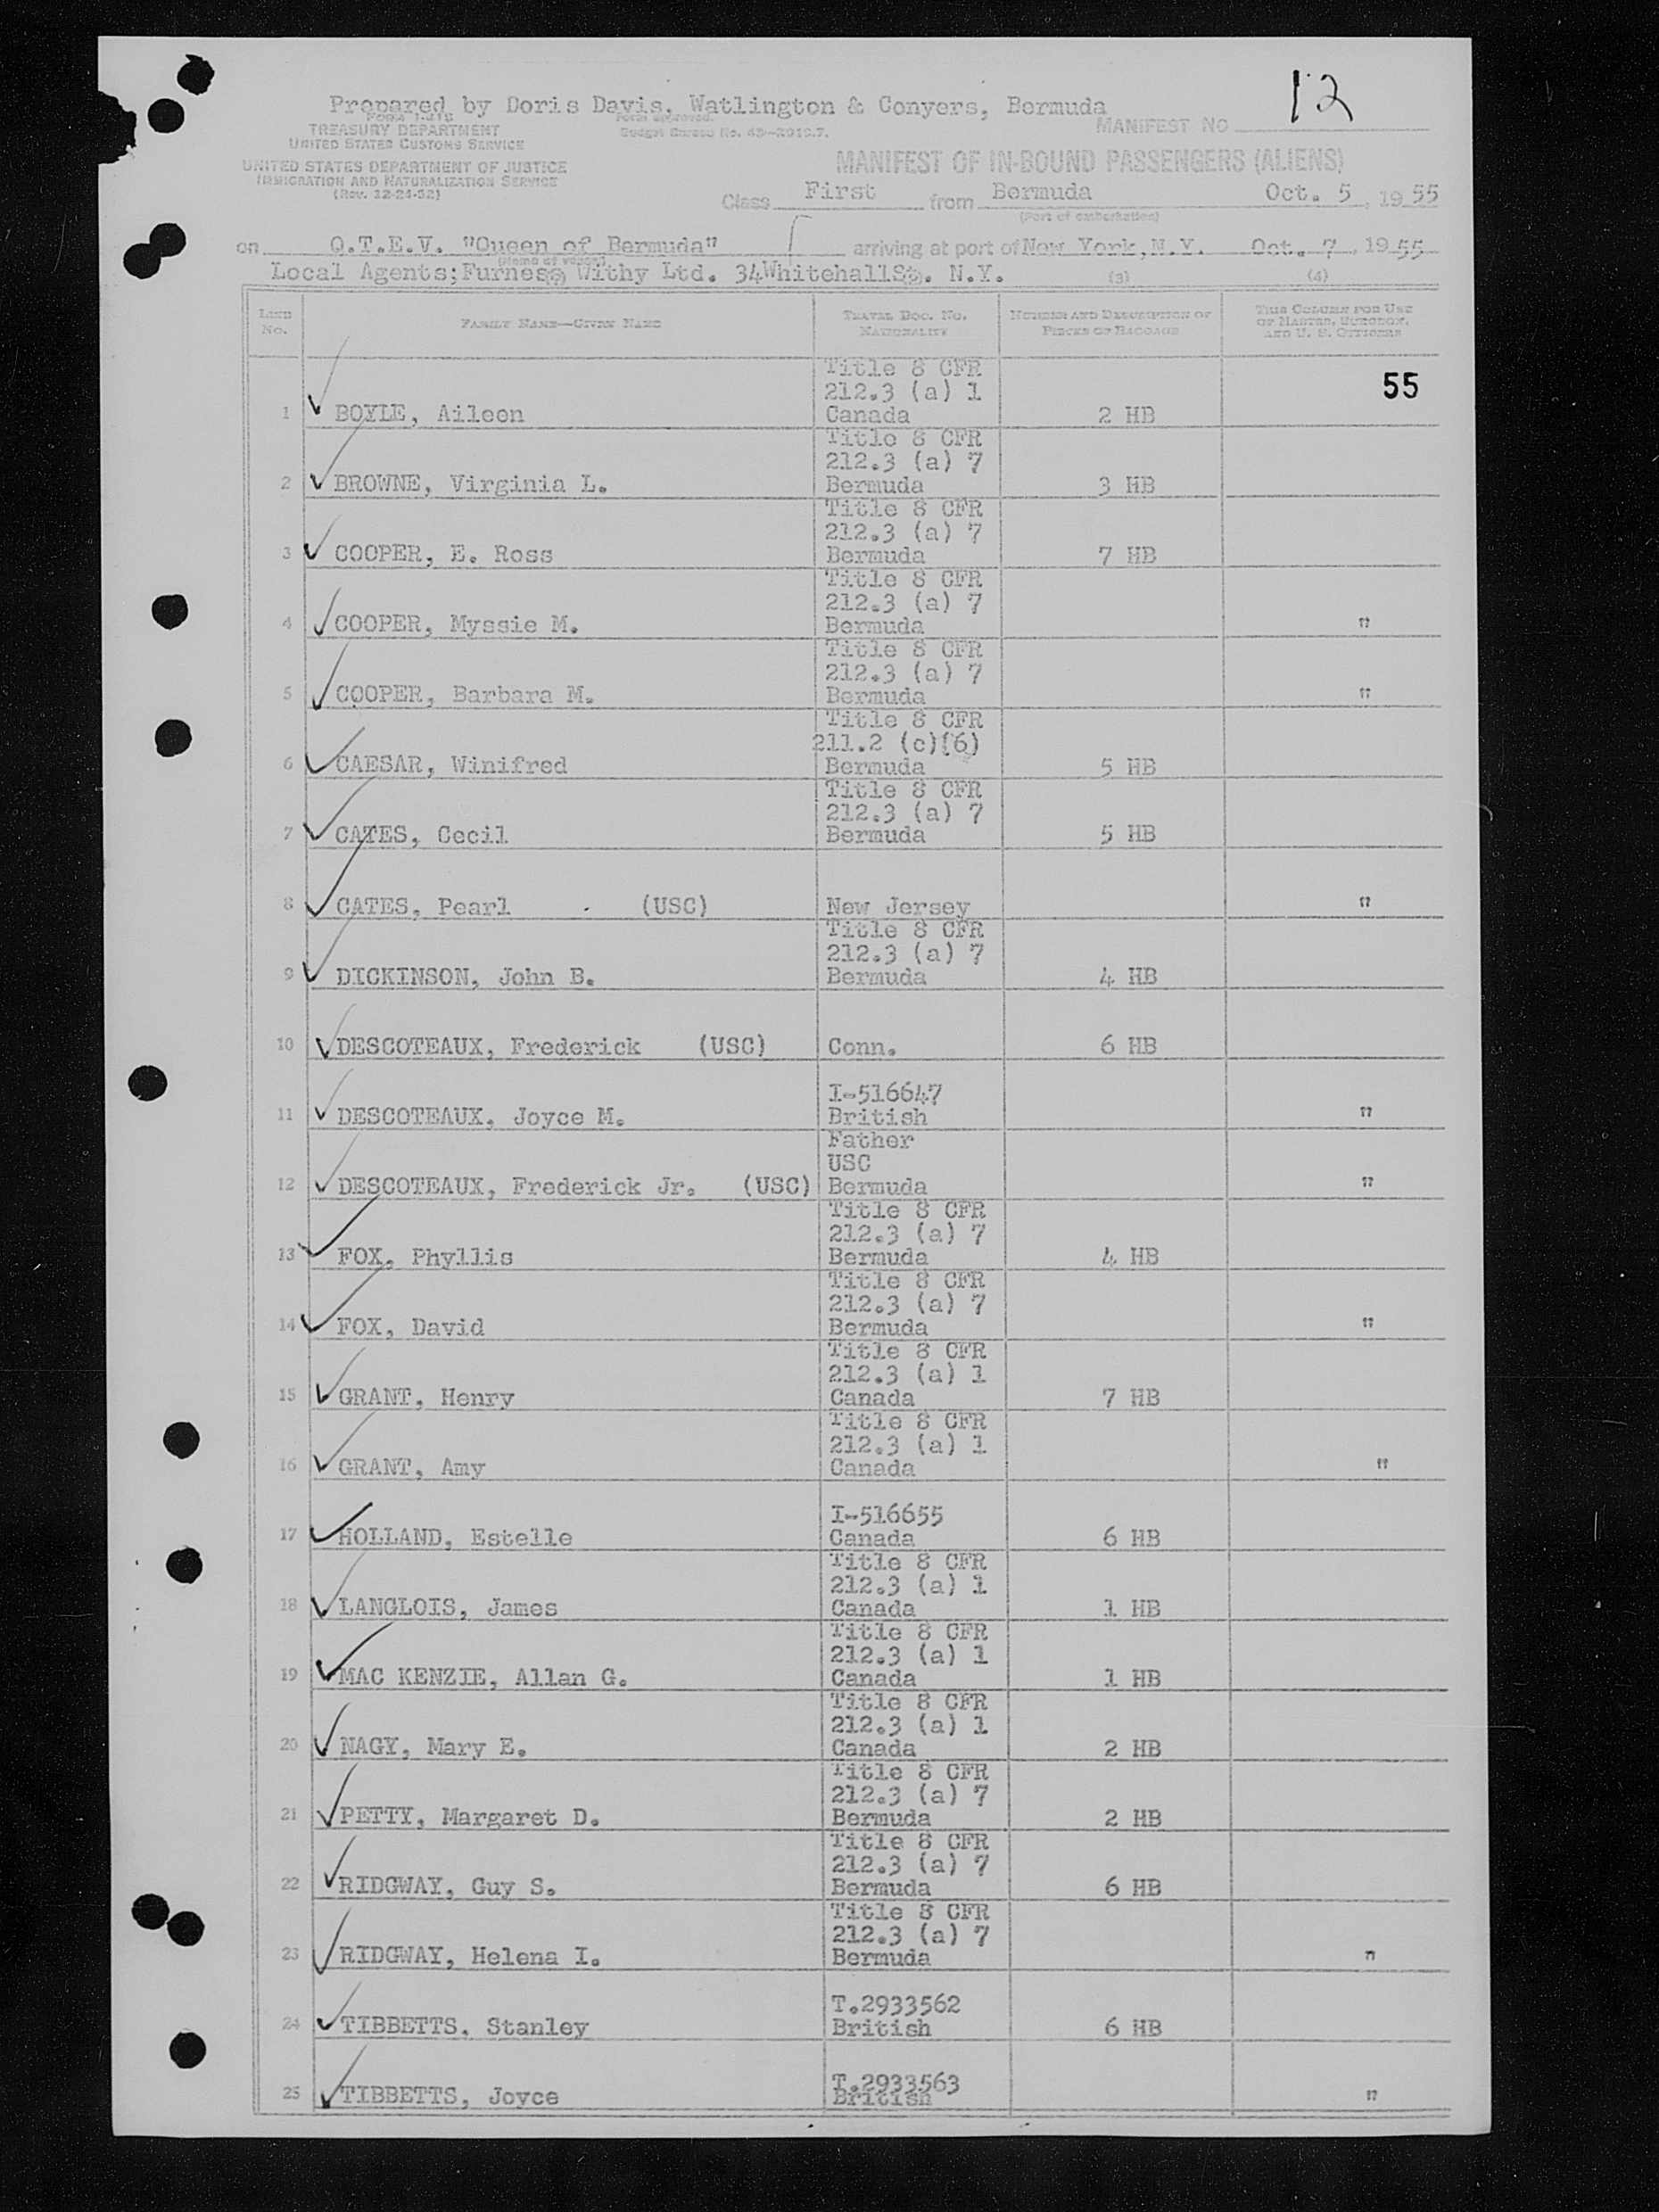 Prepared by Doris Davis, Watlington & Conyers, Bermuda
12
FORM I-418
Form approved.
TREASURY DEPARTMENT
Budget Bureau No. 43-
MANIFEST NO
UNITED STATES CUSTOMS SERVICE
UNITED STATES DEPARTMENT OF JUSTICE
IMMIGRATION AND NATURALIZATION SERVICE
(Rev. 12-24-52)
MANIFEST OF IN-BOUND PASSENGERS (ALIENS)
Class First from Bermuda Oct. 5, 1955
(Port of embarkation)
on Q.T.E.V. "Queen of Bermuda" arriving at port of New York, N.Y. Oct. 7, 1955
(Name of vessel)
Local Agents;Furness Withy Ltd. 34WhitehallSt. N.Y. (3) (4)
LINE No. FAMILY NAME—GIVEN NAME TRAVEL DOC. NO. NATIONALITY NUMBER AND DESCRIPTION OF PIECES OF BAGGAGE THIS COLUMN FOR USE OF MASTER, SURGEON, AND U. S. OFFICERS
Title 8 CFR
212.3 (a) 1 55
1 BOYLE, Aileen Canada 2 HB
Title 8 CFR
212.3 (a) 7
2 BROWNE, Virginia L. Bermuda 3 HB
Title 8 CFR
212.3 (a) 7
3 COOPER, E. Ross Bermuda 7 HB
Title 8 CFR
212.3 (a) 7
4 COOPER, Myssie M. Bermuda "
Title 8 CFR
212.3 (a) 7
5 COOPER, Barbara M. Bermuda "
Title 8 CFR
211.2 (c)(6)
6 CAESAR, Winifred Bermuda 5 HB
Title 8 CFR
212.3 (a) 7
7 CATES, Cecil Bermuda 5 HB
8 CATES, Pearl (USC) New Jersey "
Title 8 CFR
212.3 (a) 7
9 DICKINSON, John B. Bermuda 4 HB
10 DESCOTEAUX, Frederick (USC) Conn. 6 HB
I-516647
11 DESCOTEAUX, Joyce M. British "
Father
USC
12 DESCOTEAUX, Frederick Jr. (USC) Bermuda "
Title 8 CFR
212.3 (a) 7
13 FOX, Phyllis Bermuda 4 HB
Title 8 CFR
212.3 (a) 7
14 FOX, David Bermuda "
Title 8 CFR
212.3 (a) 1
15 GRANT, Henry Canada 7 HB
Title 8 CFR
212.3 (a) 1
16 GRANT, Amy Canada "
I-516655
17 HOLLAND, Estelle Canada 6 HB
Title 8 CFR
212.3 (a) 1
18 LANGLOIS, James Canada 1 HB
Title 8 CFR
212.3 (a) 1
19 MAC KENZIE, Allan G. Canada 1 HB
Title 8 CFR
212.3 (a) 1
20 NAGY, Mary E. Canada 2 HB
Title 8 CFR
212.3 (a) 7
21 PETTY, Margaret D. Bermuda 2 HB
Title 8 CFR
212.3 (a) 7
22 RIDGWAY, Guy S. Bermuda 6 HB
Title 8 CFR
212.3 (a) 7
23 RIDGWAY, Helena I. Bermuda "
T.2933562
24 TIBBETTS, Stanley British 6 HB
T.2933563
25 TIBBETTS, Joyce British "